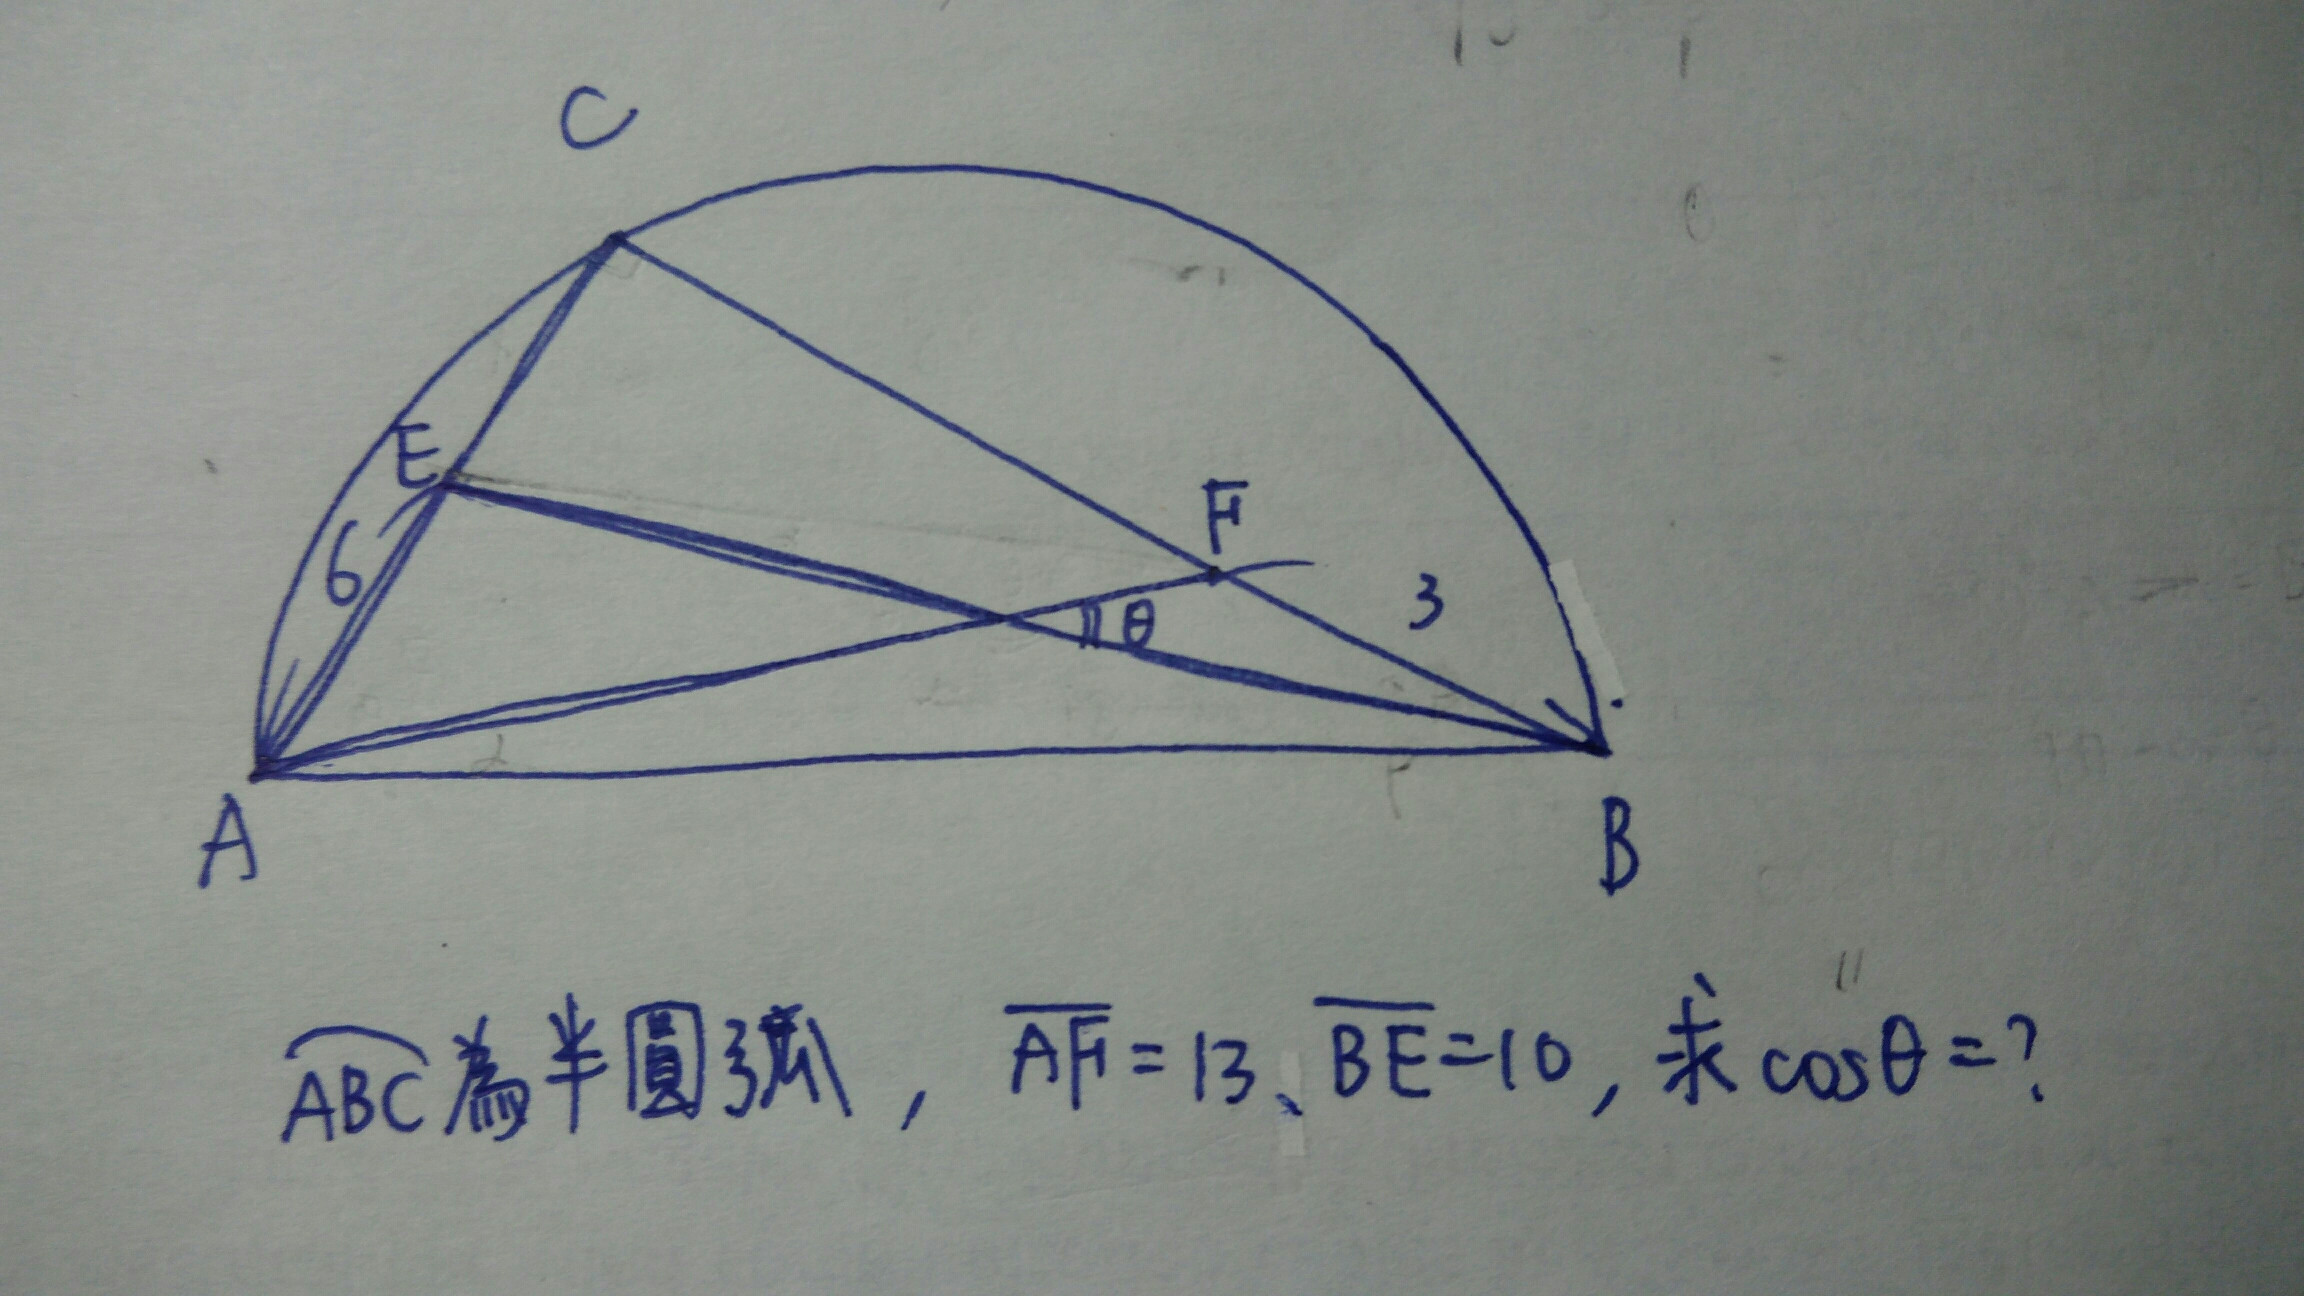 C
E
F
6
3
θ
A
B
ABC為半圓弧, AF=13、BE=10, 求cosθ=?